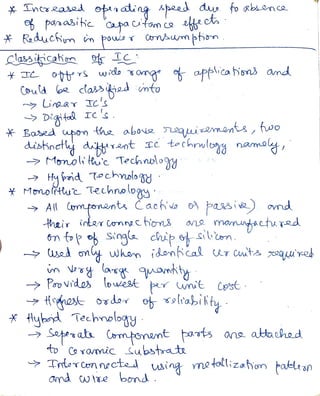 * Increased operating speed due to absence
of parasitic capacitance effects.
* Reduction in power consumption.
Classification of IC:
* IC offers wide range of applications and
could be classified into
→ Linear IC's
→ Digital IC's.
* Based upon the above requirements, two
distinctly different IC technology namely,
→ Monolithic Technology
→ Hybrid Technology.
* Monolithic Technology.
→ All Components (active or passive) and
their interconnections are manufactured
on top of single chip of silicon.
→ Used only when identical circuits required
in very large quantity.
→ Provides lowest per unit cost.
→ Highest order of reliability.
* Hybrid Technology.
→ Seperate Component parts are attached
to Ceramic Substrate
→ Interconnected using metallization pattern
and wire bond.